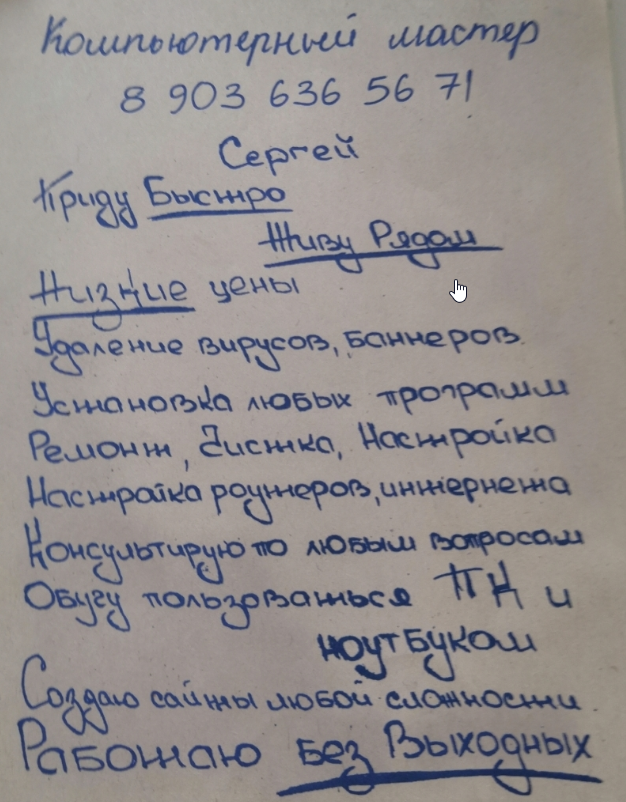 Компьютерный мастер
8 903 636 56 71
Сергей
Приду Быстро
Живу Рядом
Низкие цены
Удаление вирусов, баннеров.
Установка любых программ
Ремонт, Чистка, Настройка
Настройка роутеров, интернета
Консультирую по любым вопросам
Обучу пользоваться ПК и
ноутбуком
Создаю сайты любой сложности.
Работаю без Выходных